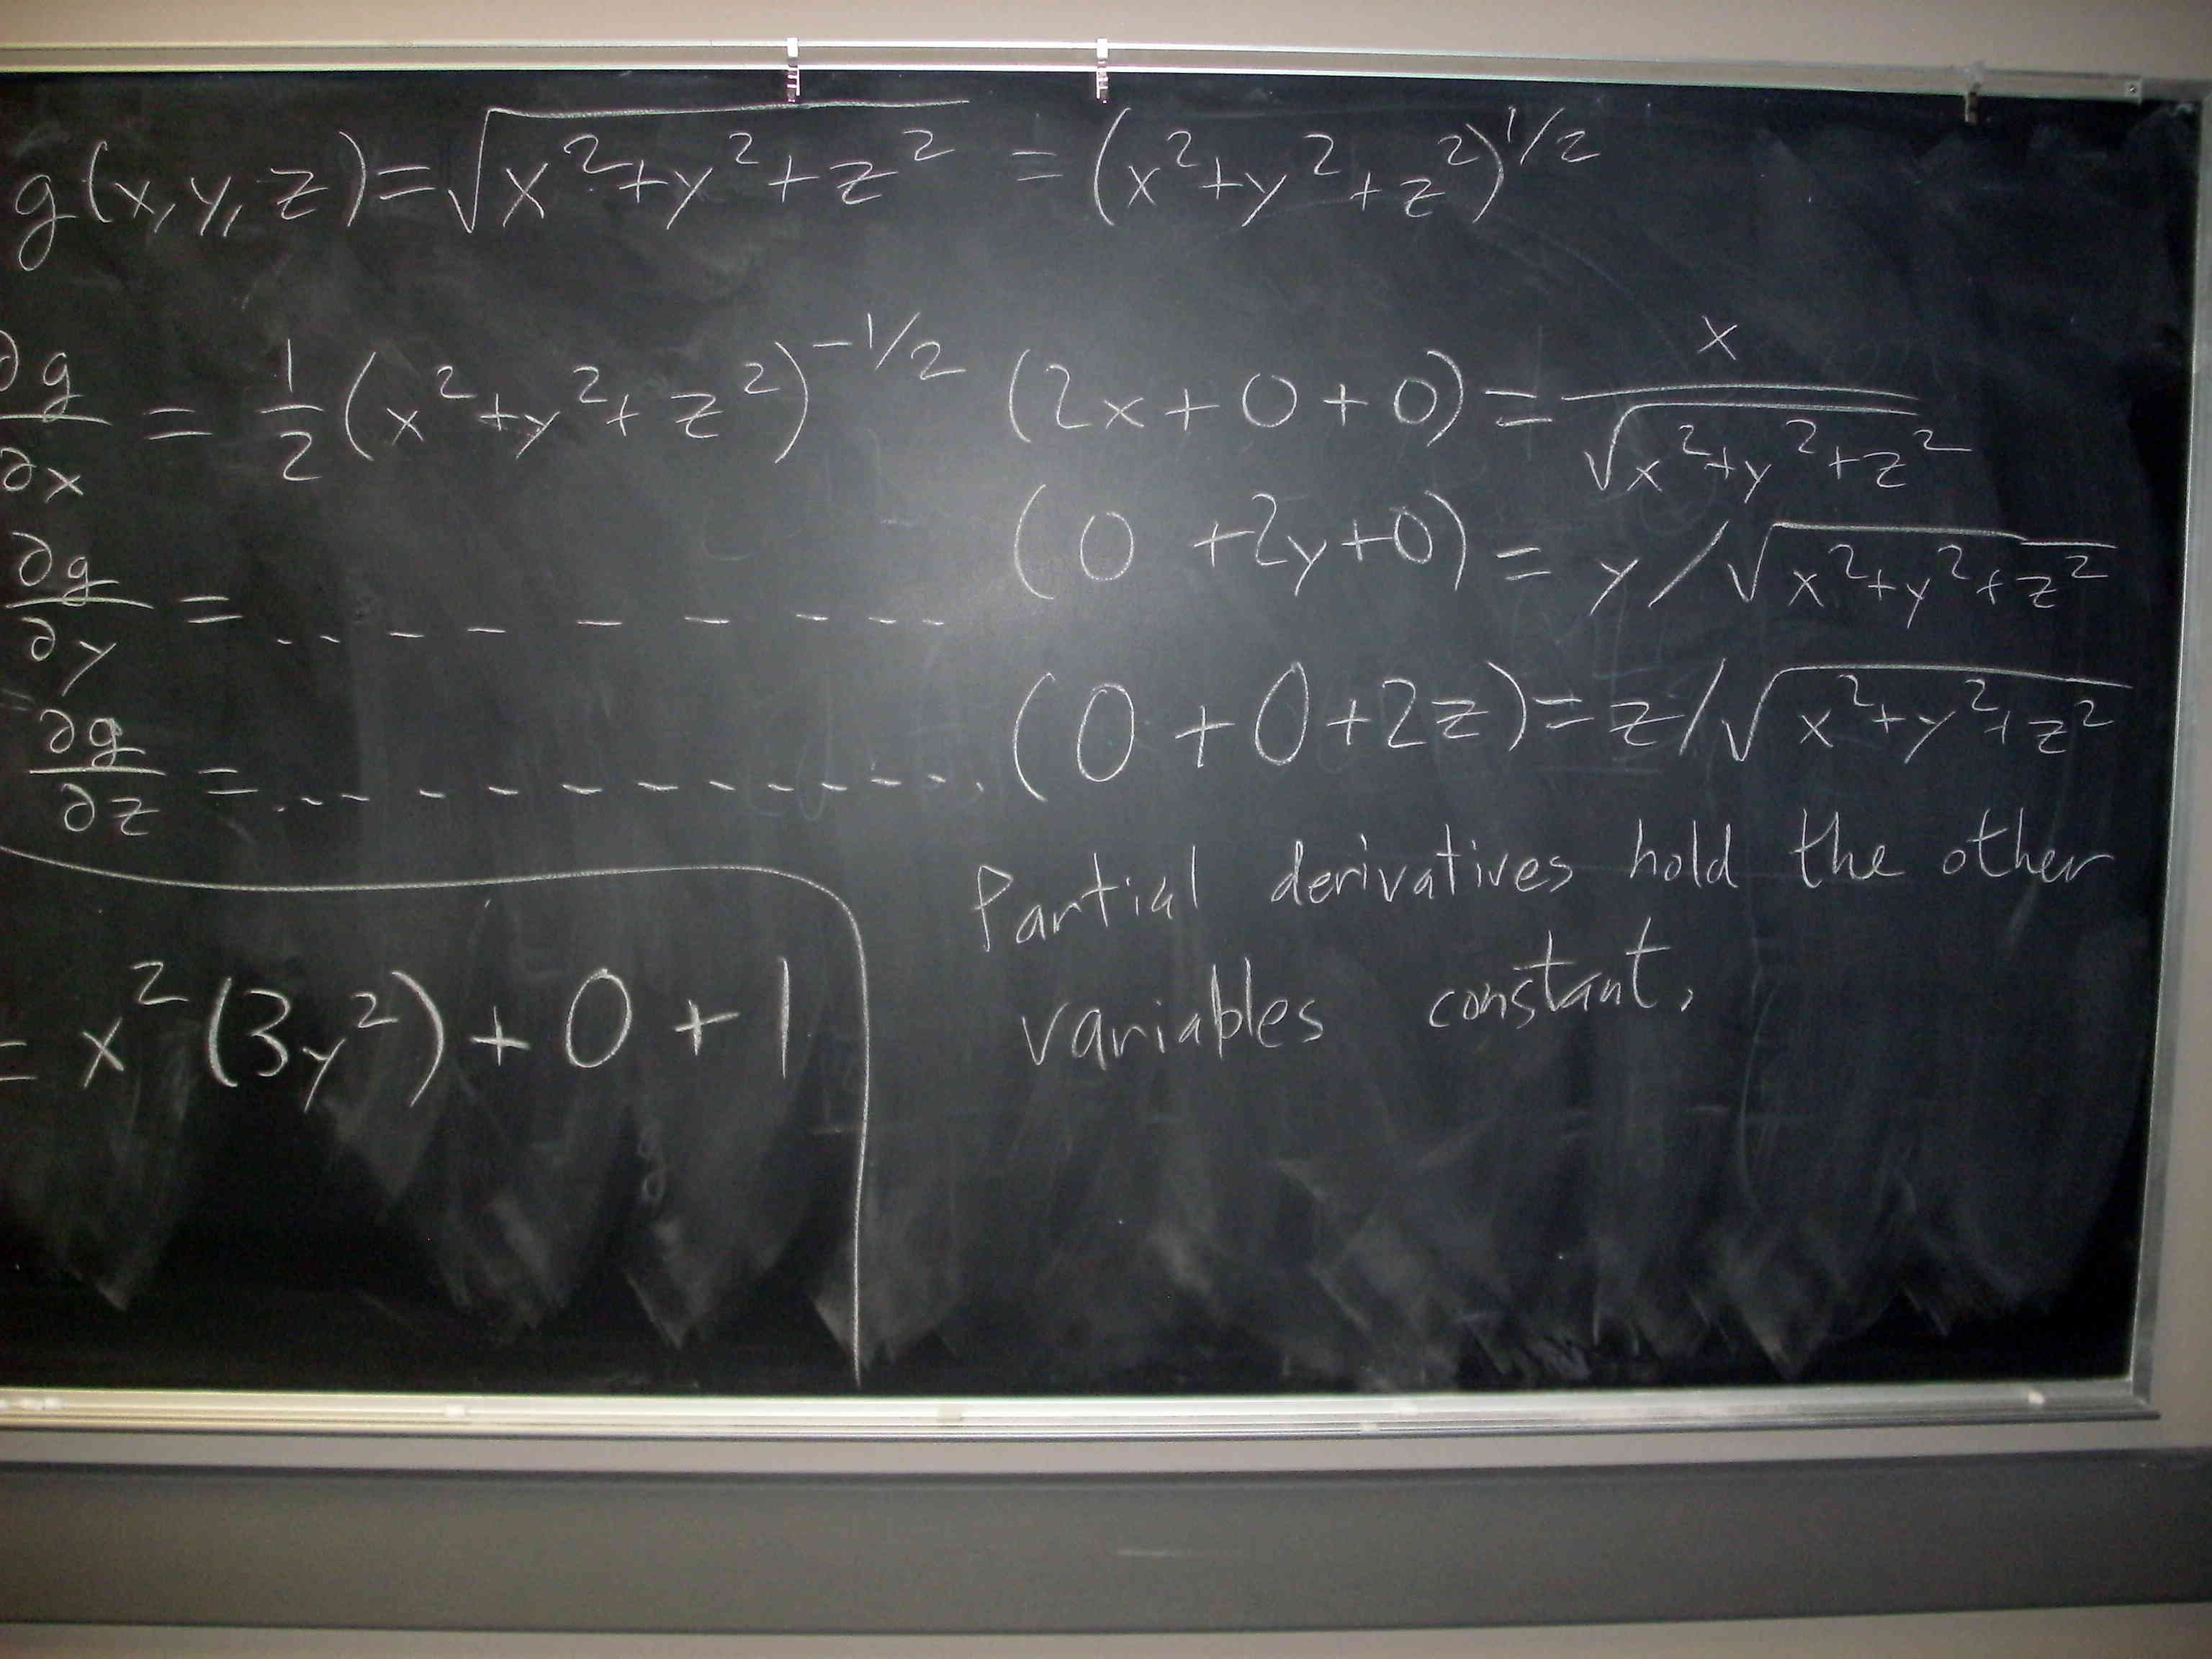 g(x,y,z)=√(x²+y²+z²) = (x²+y²+z²)^1/2
∂g/∂x = 1/2 (x²+y²+z²)^-1/2 (2x+0+0) = x/√(x²+y²+z²)
∂g/∂y = .. - - - - - - - (0 +2y+0) = y/√(x²+y²+z²)
∂g/∂z = ..- - - - - - - - - - -. (0+0+2z) = z/√(x²+y²+z²)
Partial derivatives hold the other
variables constant.
= x²(3y²)+0+1